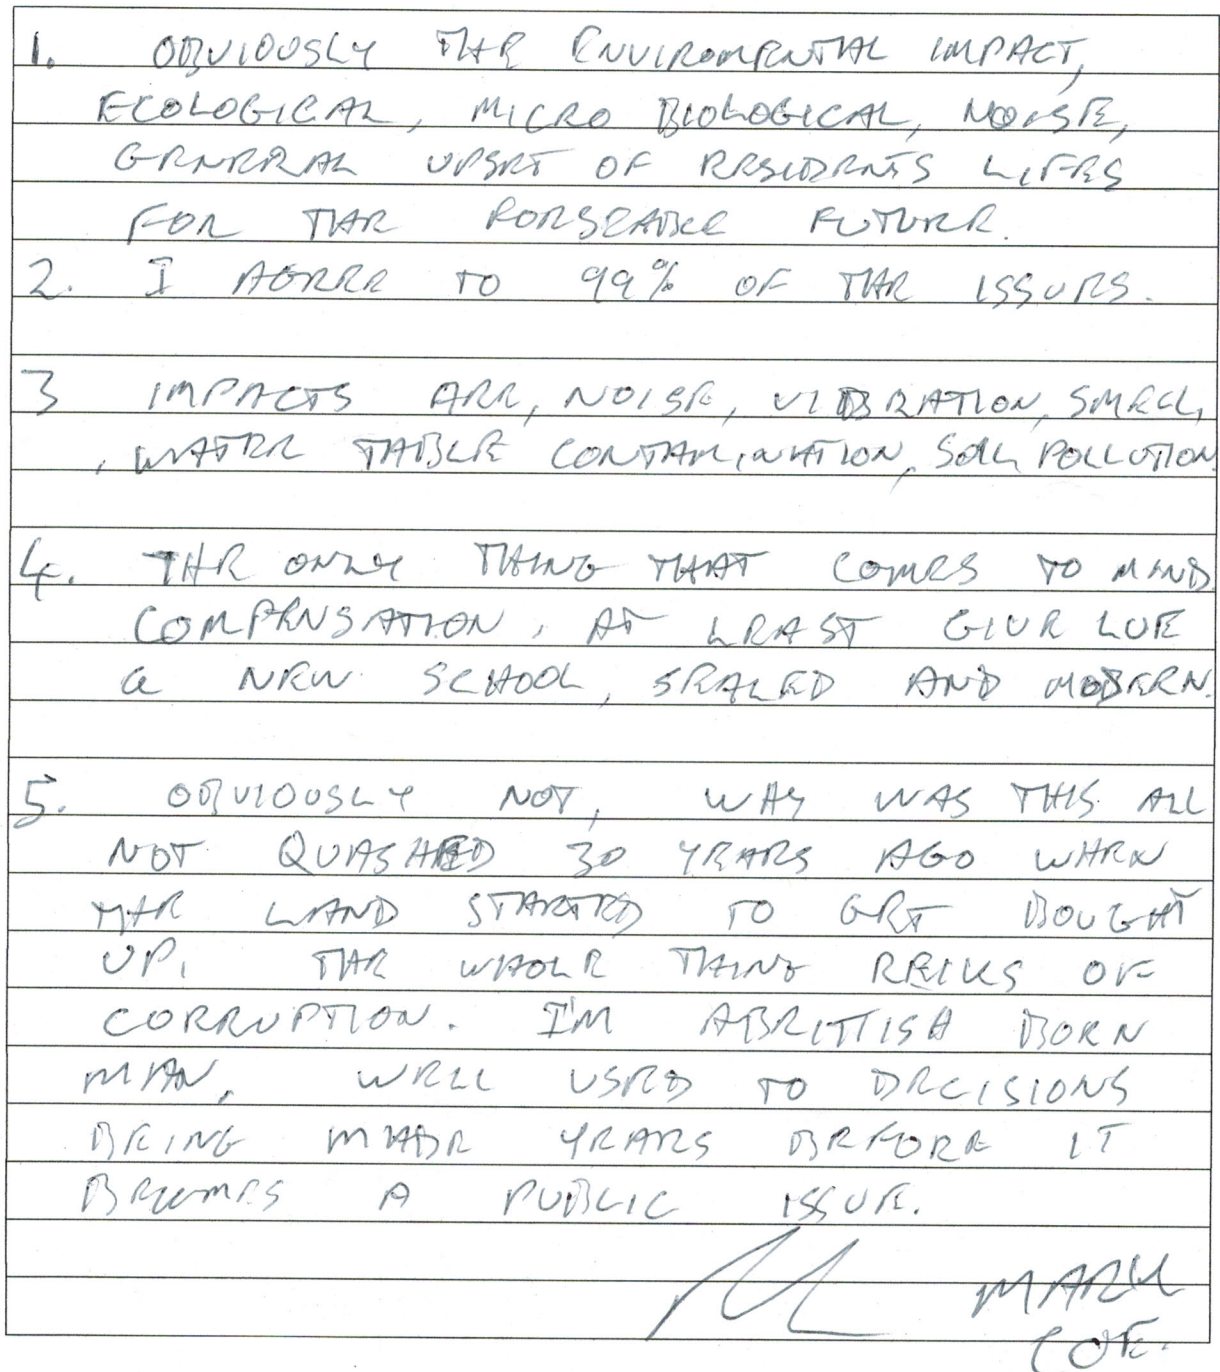 1. OBVIOUSLY THE ENVIROMENTAL IMPACT,
ECOLOGICAL, MICRO BIOLOGICAL, NOISE,
GENERAL UPSET OF RESIDENTS LIFES
FOR THE FORSEABLE FUTURE.
2. I AGREE TO 99% OF THE ISSUES.
3 IMPACTS ARE, NOISE, VIBRATION, SMELL,
, WATER TABLE CONTAMINATION, SOIL POLLUTION
4. THE ONLY THING THAT COMES TO MIND
COMPENSATION, AT LEAST GIVE LUE
a NEW SCHOOL, SEALED AND MODERN.
5. OBVIOUSLY NOT, WHY WAS THIS ALL
NOT QUASHED 30 YEARS AGO WHEN
THE LAND STARTED TO GET BOUGHT
UP. THE WHOLE THING REEKS OF
CORRUPTION. I'M A BRITTISH BORN
MAN, WELL USED TO DECISIONS
BEING MADE YEARS BEFORE IT
BECOMES A PUBLIC ISSUE.
MARK
COE.